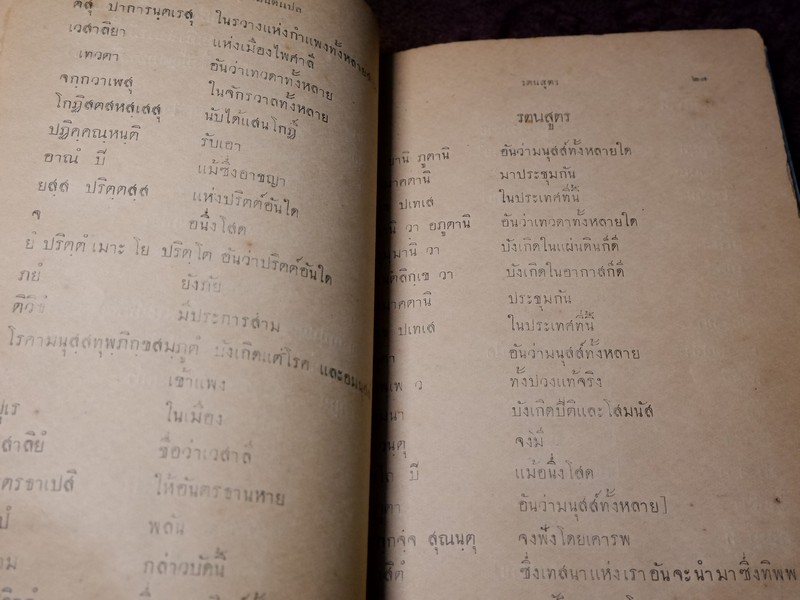 ปาการนฺตเรสุ ในรวางแห่งกำแพงทั้งหลาย
เวสาลิยา แห่งเมืองไพศาลี
เทวตา อันว่าเทวดาทั้งหลาย
จกฺกวาเฬสุ ในจักรวาลทั้งหลาย
โกฏิสตสหสฺเสสุ นับได้แสนโกฏิ์
ปฏิคฺคณฺหนฺติ รับเอา
อาณํ ปิ แม้ซึ่งอาชญา
ยสฺส ปริตฺตสฺส แห่งปริตต์อันใด
จ อนึ่งโสด
ยํ ปริตฺตํ เมาะ โย ปริตฺโต อันว่าปริตต์อันใด
ภยํ ยังภัย
ติวิธํ มีประการสาม
โรคามนุสฺสทุพภิกฺขสมฺภูตํ บังเกิดแต่โรค และอมนุ
เข้าแพง
ในเมือง
สาลิยํ ชื่อว่าเวสาลี
ตรธาเปสิ ให้อันตรธานหาย
พลัน
กล่าวบัดนี้
รตนสูตร ๒๓
รตนสูตร
านิ ภูตานิ อันว่ามนุสส์ทั้งหลายใด
าคตานิ มาประชุมกัน
ปเทเส ในประเทศที่นี้
นิ วา อภูตานิ อันว่าเทวดาทั้งหลายใด
มานิ วา บังเกิดในแผ่นดินก็ดี
ตลิกฺเข วา บังเกิดในอากาสก็ดี
าคตานิ ประชุมกัน
ปเทเส ในประเทศที่นี้
อันว่ามนุสส์ทั้งหลาย
พ ว ทั้งปวงแท้จริง
มนา บังเกิดปีติและโสมนัส
นฺตุ จงมี
ปิ แม้อนึ่งโสด
ตา อันว่ามนุสส์ทั้งหลาย]
กจฺจ สุณนฺตุ จงฟังโดยเคารพ
สิตํ ซึ่งเทสนาแห่งเราอันจะนำมาซึ่งทิพพ